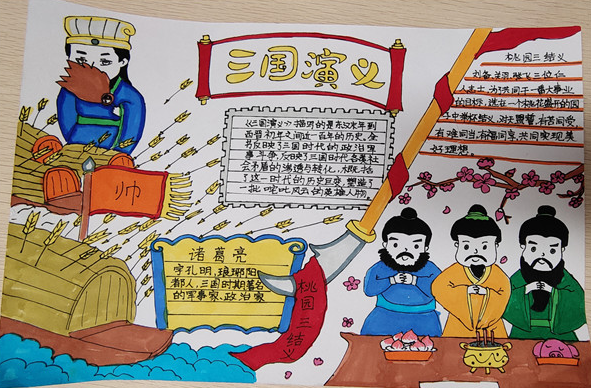 三国演义
《三国演义》描写的是东汉末年到
西晋初年之间近一百年的历史,全
书反映了三国时代的政治军
事斗争,反映了三国时代各类社
会矛盾的渗透与转化,概括
了这一时代的历史巨变,塑造了
一批叱咤风云的英雄人物。
桃园三结义
刘备、关羽、张飞三位仁
人志士,为了共同干一番大事业
的目标,选在一个桃花盛开的园
子中举杯结义,对天盟誓,有苦同受
有难同当,有福同享,共同实现美
好理想。
帅
诸葛亮
字孔明,琅琊阳
都人,三国时期著名
的军事家、政治家
桃园三结义